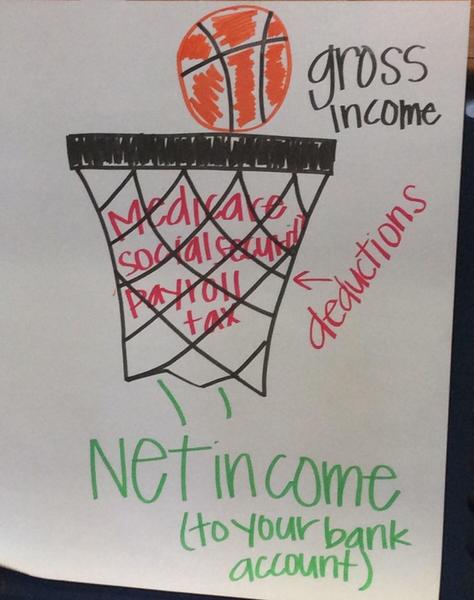 gross
income
Medicare
social security
payroll
tax
deductions
Net income
(to your bank
account)